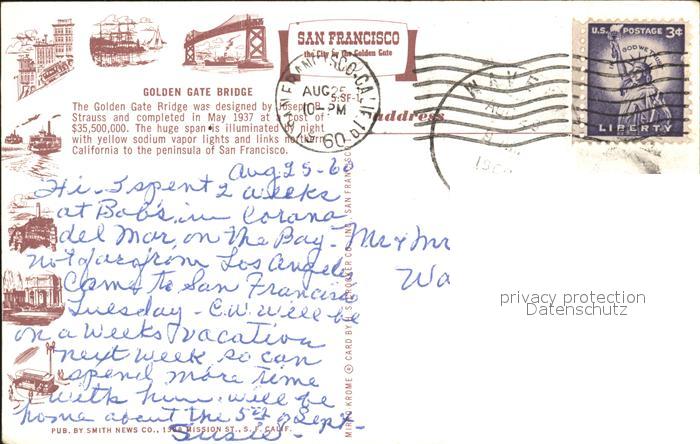 SAN FRANCISCO
the City by the Golden Gate
U.S. POSTAGE 3¢
IN GOD WE TRUST
LIBERTY
SAN FRANCISCO, CALIF.
AUG 25
10 PM
1960
GOLDEN GATE BRIDGE
5:SF-1
The Golden Gate Bridge was designed by Joseph B.
Strauss and completed in May 1937 at a cost of
$35,500,000. The huge span is illuminated by night
with yellow sodium vapor lights and links northern
California to the peninsula of San Francisco.
address
Aug 25-60
Hi - I spent 2 weeks
at Bob's, in Corona
del Mar, on the Bay -
not far from Los Angeles
Came to San Francisco
Tuesday - C.W. will be
on a weeks vacation
next week so can
spend more time
with him. will be
home about the 5th of Sept -
Susie -
Mr & Mr
Wa
PUB. BY SMITH NEWS CO., MISSION ST., S. F. CALIF.
MIRRO-KROME ® CARD BY H. S. CROCKER CO., INC., SAN FRANCISCO
privacy protection
Datenschutz